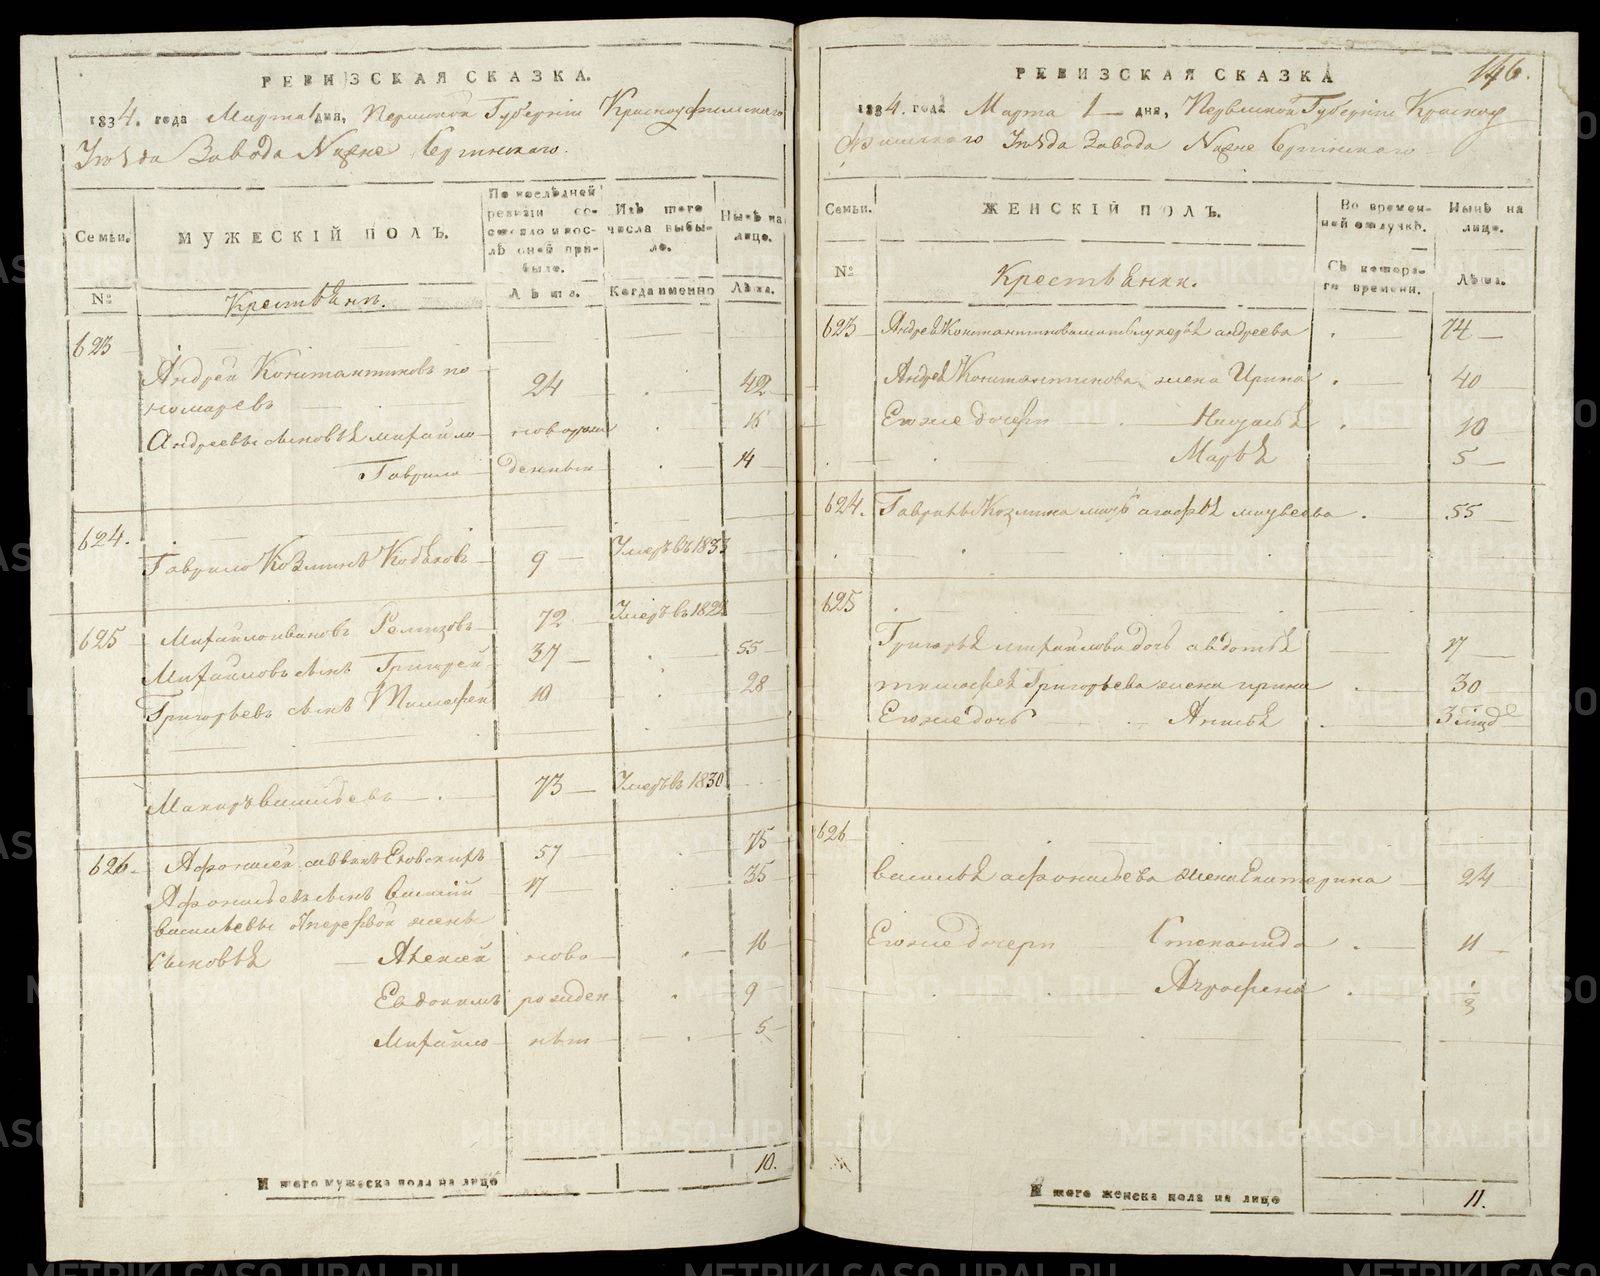 РЕВИЗСКАЯ СКАЗКА.
1834. года Марта 1 дня, Пермской Губернии Красноуфимского
Уѣзда Завода Нижне Сергинского.
Семьи.
МУЖЕСКІЙ ПОЛЪ.
По послѣдней ревизіи состояло и послѣ оней прибыло.
Изъ того числа выбыло.
Нынѣ на лицо.
№
Крестьѣнѣ.
Лѣта.
Когда именно
Лѣта.
623
Андрей Константиновъ по
номаревъ 24 42
Андреевы сыновьѣ михайло новорож 15
Гаврило денныи 14
624.
Гаврило Козминъ 9 Умеръ въ 1833
625 Михайло ивановъ Ремизовъ 72 Умеръ въ 1828
Михайловъ сынъ Григорей 37 55
Григорьевъ сынъ Тимофей 10 28
Макаръ васильевъ 73 Умеръ въ 1830
626 Афонасей саввинъ 57 75
Афонасьевъ сынъ Василий 17 35
васильевы отпервой жены
сыновьѣ Алексей ново 16
Евдокимъ рожден 9
Михайло нѣт 5
И того мужеска пола на лицо 10.
146.
РЕВИЗСКАЯ СКАЗКА
1834. года Марта 1 дня, Пермской Губернии Красноу
фимского Уѣзда Завода Нижне Сергинского
Семьи.
ЖЕНСКІЙ ПОЛЪ.
Во временной отлучкѣ.
Нынѣ на лицо.
№
Крестьѣнки.
Съ которого времени.
Лѣта.
623 Андреѣ Константинова мать андреева 74
Андреѣ Константинова жена Ирина 40
Егоже дочери Наталья 10
Марьѣ 5
624. Гаврилы Козмина мать агафьѣ матвеева 55
625
Григорьѣ михайлова дочь авдотьѣ 17
тимофеѣ Григорьева жена ирина 30
Егоже дочь Анисьѣ 3 мцд
626
васильѣ афонасьева жена Екатерина 24
Егоже дочери Степанида 11
Аграфена 1/3
И того женска пола на лицо 11.
METRIKI.GASO-URAL.RU